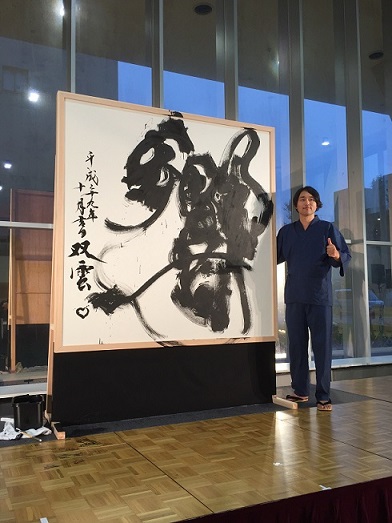 響
平成二十九年
十月吉日
双雲♡